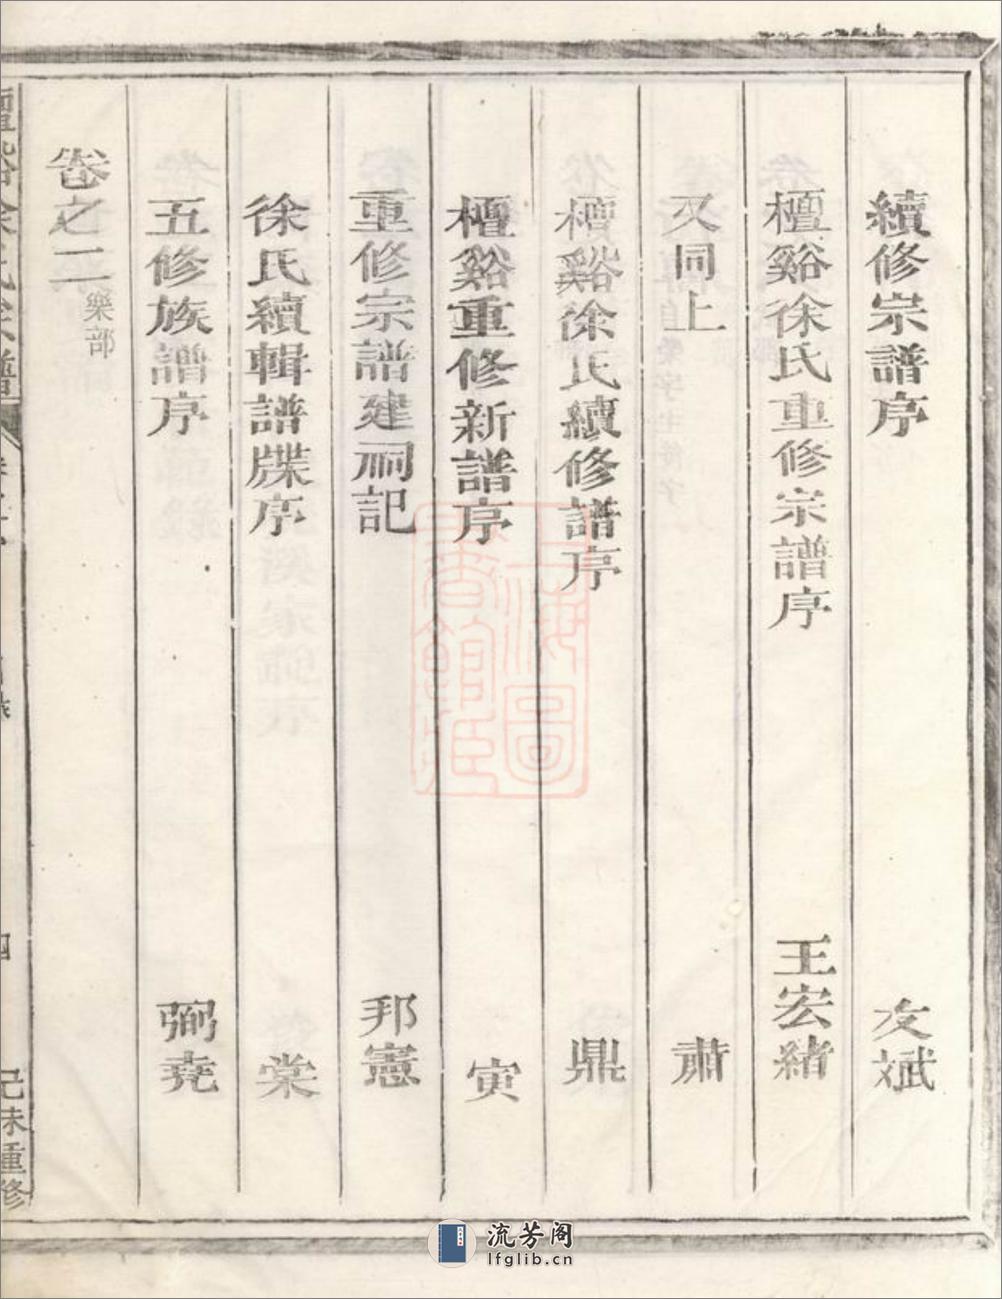 續修宗譜序　友斌
檀谿徐氏重修宗譜序　王宏緒
又同上　肅
檀谿徐氏續修譜序　鼎
檀谿重修新譜序　寅
重修宗譜建祠記　邦憲
徐氏續輯譜牒序　棠
五修族譜序　弼堯
卷之二 樂部
徐氏宗譜
四
己未重修
上海圖書館藏
流芳阁
lfglib.cn